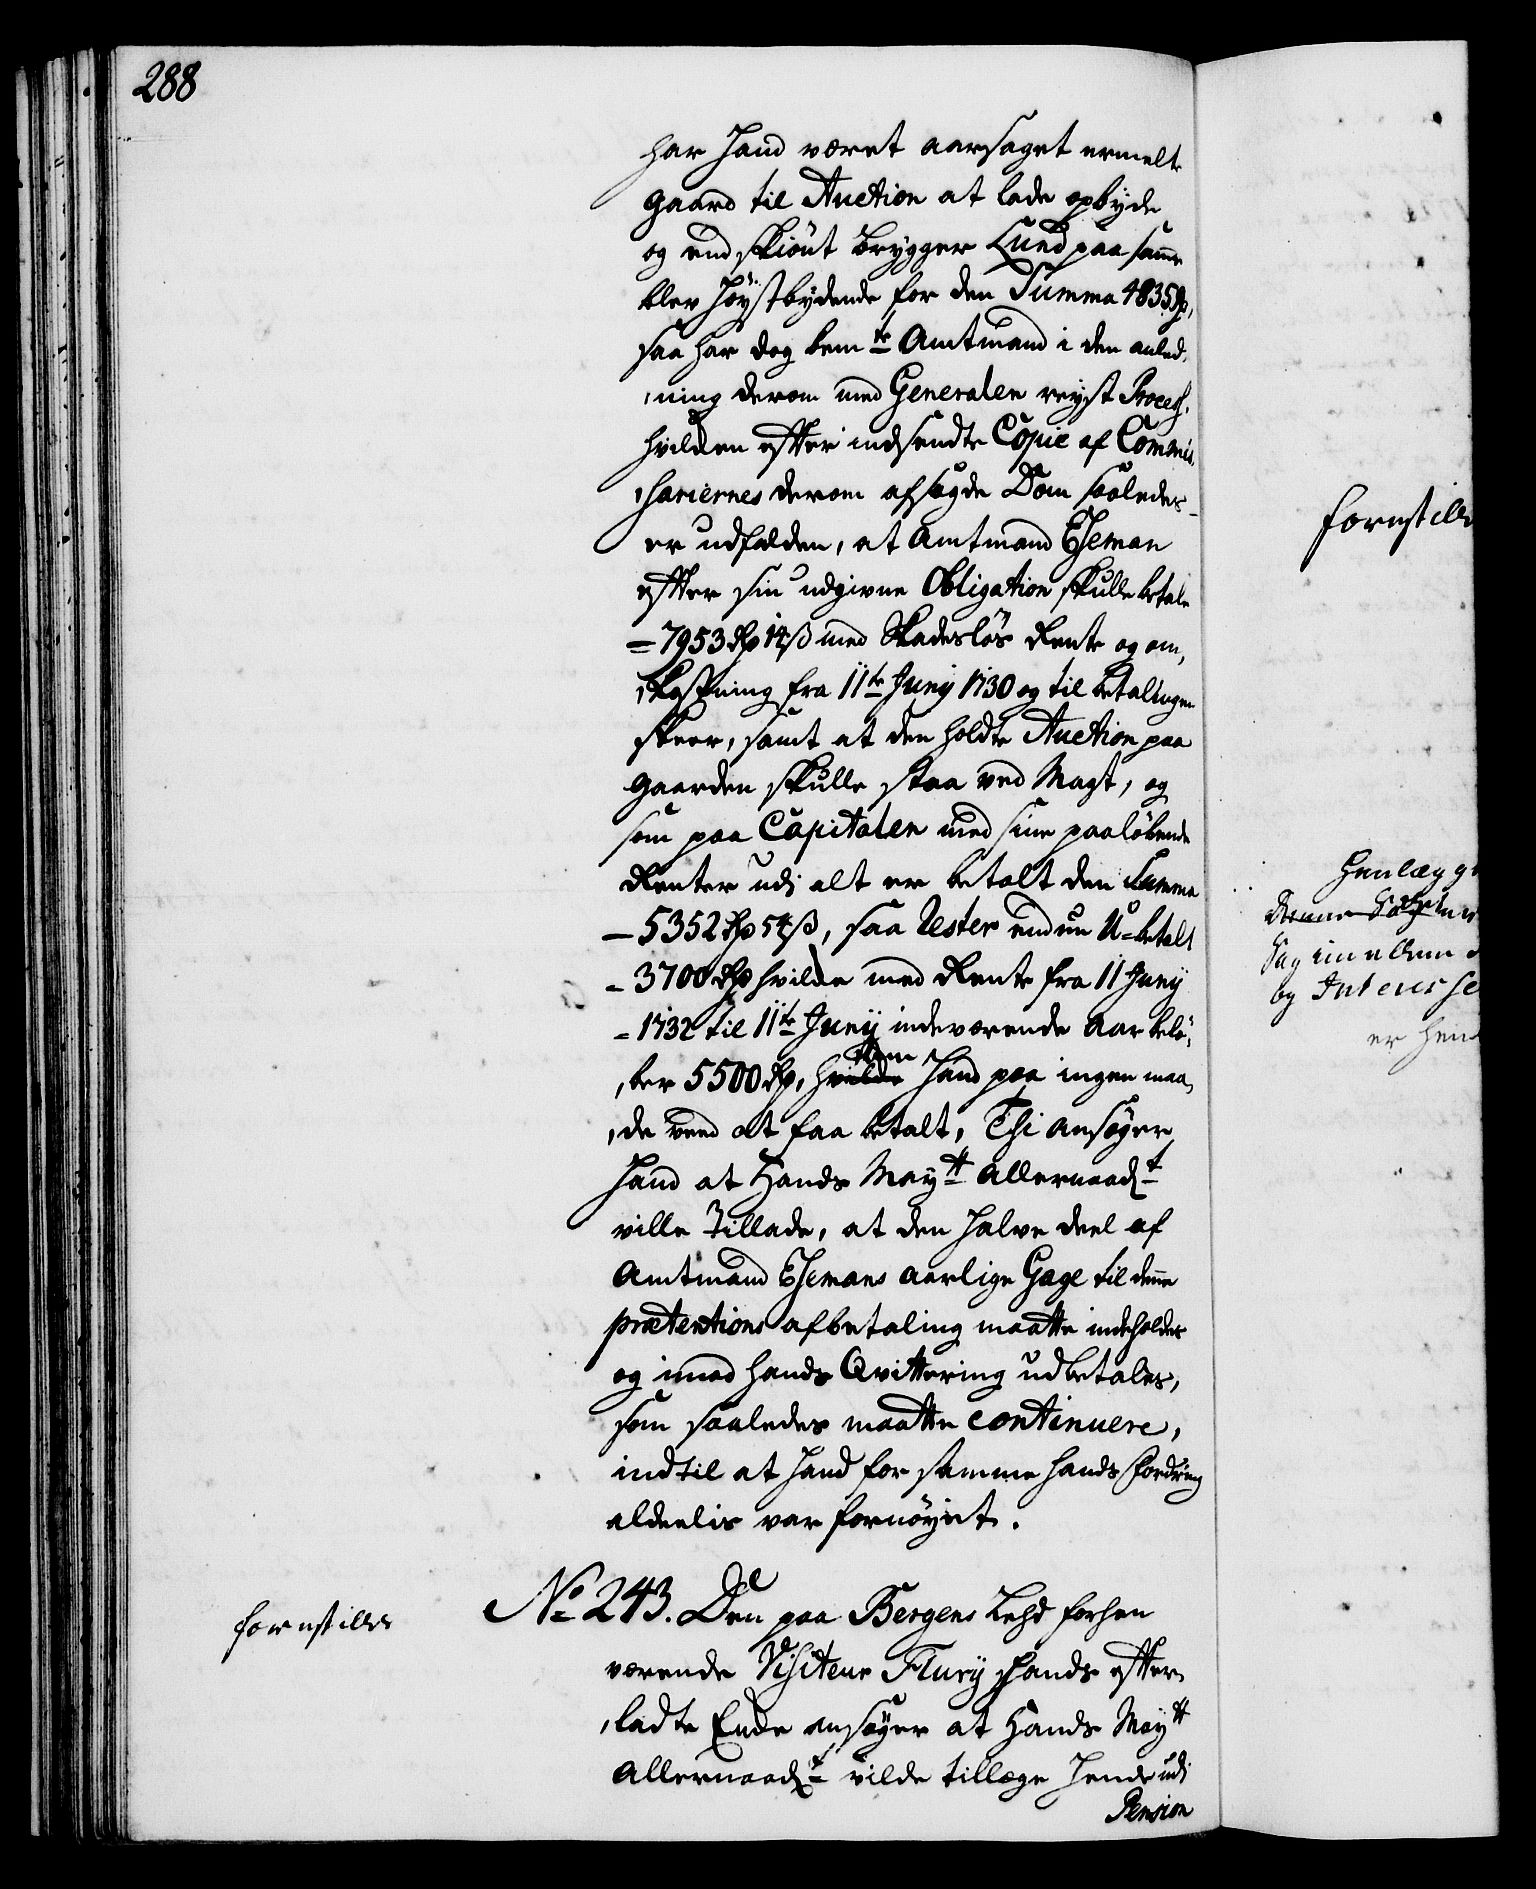 288
har hand været aarsaget ermelte
gaard til Auction at lade opbyde
og end skiönt brygger Lund paa samme
blev höystbydende for den Summa 4835 Rdr,
saa har dog bemte Amtmand i den anled,
,ning derom med Generalen reyst Process,
hvilken efter indsendte Copie af Commis,
,sariernes derom afsagde Dom saaledes
er udfalden, at Amtmand Eseman
efter sin udgivne Obligation skulle betale
= 7953 Rdr 14 ß med Skadeslös Rente og om,
,kostning fra 11te Junij 1730 og til betalingen
skeer, samt at den holdte Auction paa
gaarden skulle staa ved Magt, og
som paa Capitalen med sine paalöbende
Renter udj alt er betalt den Summa
- 5352 Rdr 54 ß, saa Rester endnu U=betalt
- 3700 Rdr hvilke med Rente fra 11 Junij
= 1732 til 11te Junij indeværende Aar belö,
,ber 5500 Rdr, hvilke dem hand paa ingen maa,
,de veed at faa betalt, Thi ansöger
hand at Hands Maytt allernaadt
ville Tillade, at den halve deel af
Amtmand Esemans aarlige Gage til denne
prætentions afbetaling maatte indeholdes
og imod hands Qvittering udbetales,
som saaledes maatte continuere,
indtil at hand for samme hands fordring
aldeelis var fornöyet.
fornstilles
No 243. Den paa Bergens Told forhen
værende Visiteur Flury hands efter,
,ladte Enke ansöger at Hands Maytt
Allernaadt vilde tillæge hende udj
Pension
fornstille
Henlægg
Sag imellem
og Interesse
er hen